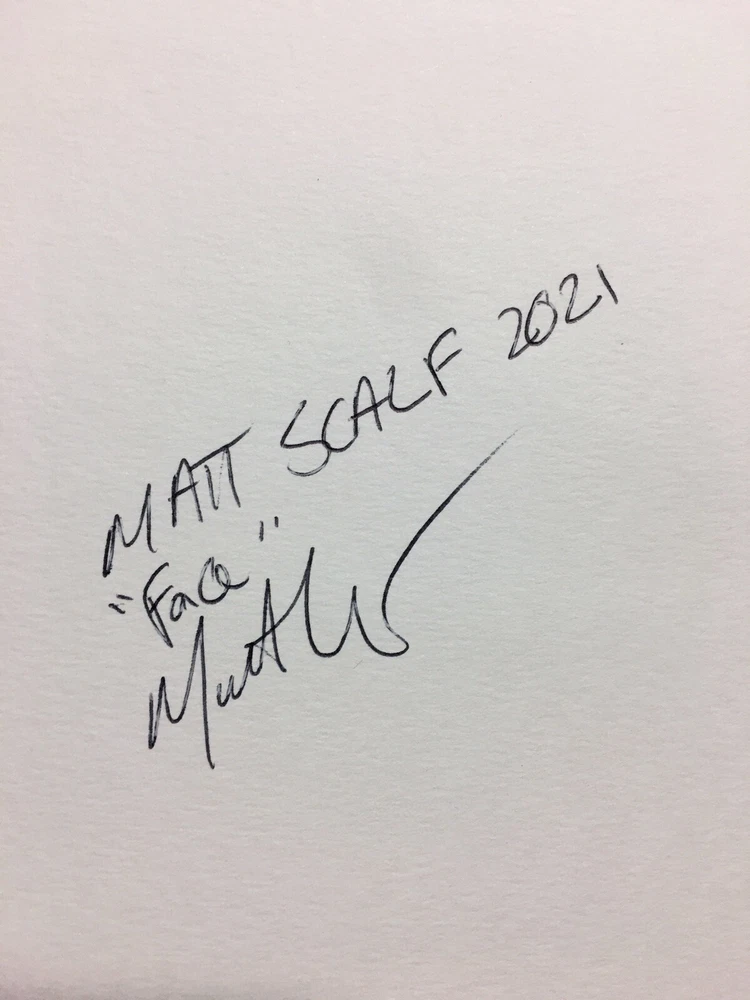 MATT SCALF 2021
"Face"